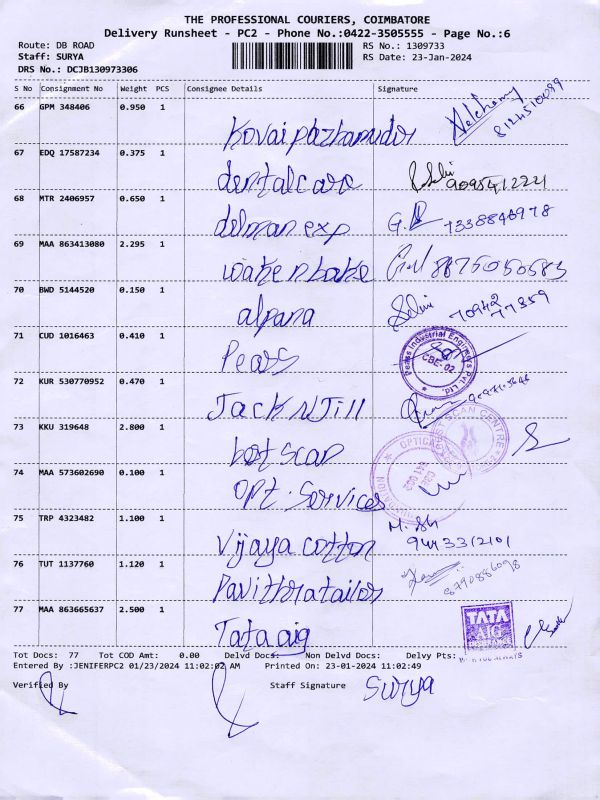 THE PROFESSIONAL COURIERS, COIMBATORE
Delivery Runsheet - PC2 - Phone No.:0422-3505555 - Page No.:6
Route: DB ROAD RS No.: 1309733
Staff: SURYA RS Date: 23-Jan-2024
DRS No.: DCJB130973306
S No Consignment No Weight PCS Consignee Details Signature
66 GPM 348406 0.950 1
Kovai pazhamudir 8124510099
67 EDQ 17587234 0.375 1
dentalcare 9095412221
68 MTR 2406957 0.650 1
delman exp 7338846978
69 MAA 863413080 2.295 1
waken bake 8875050583
70 BWD 5144520 0.150 1
alpana Selvi 70942 77359
71 CUD 1016463 0.410 1
Pears Pears Industrial Engineers Pvt. Ltd. CBE-02
72 KUR 530770952 0.470 1
Jack N Jill
73 KKU 319648 2.800 1
best scan SCAN CENTRE
74 MAA 573602690 0.100 1
opt. Services OPTICAL
75 TRP 4323482 1.100 1
Vijaya cotton 9443312101
76 TUT 1137760 1.120 1
Pavithra tailor 8790886098
77 MAA 863665637 2.500 1
Tata aig TATA AIG
Tot Docs: 77 Tot COD Amt: 0.00 Delvd Docs: Non Delvd Docs: Delvy Pts:
Entered By :JENIFERPC2 01/23/2024 11:02:02 AM Printed On: 23-01-2024 11:02:49
Verified By Staff Signature Surya